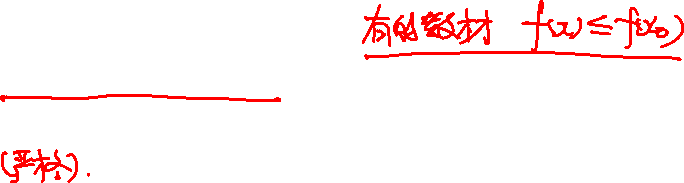 有的教材 f(x)≤f(x₀)
(严格).